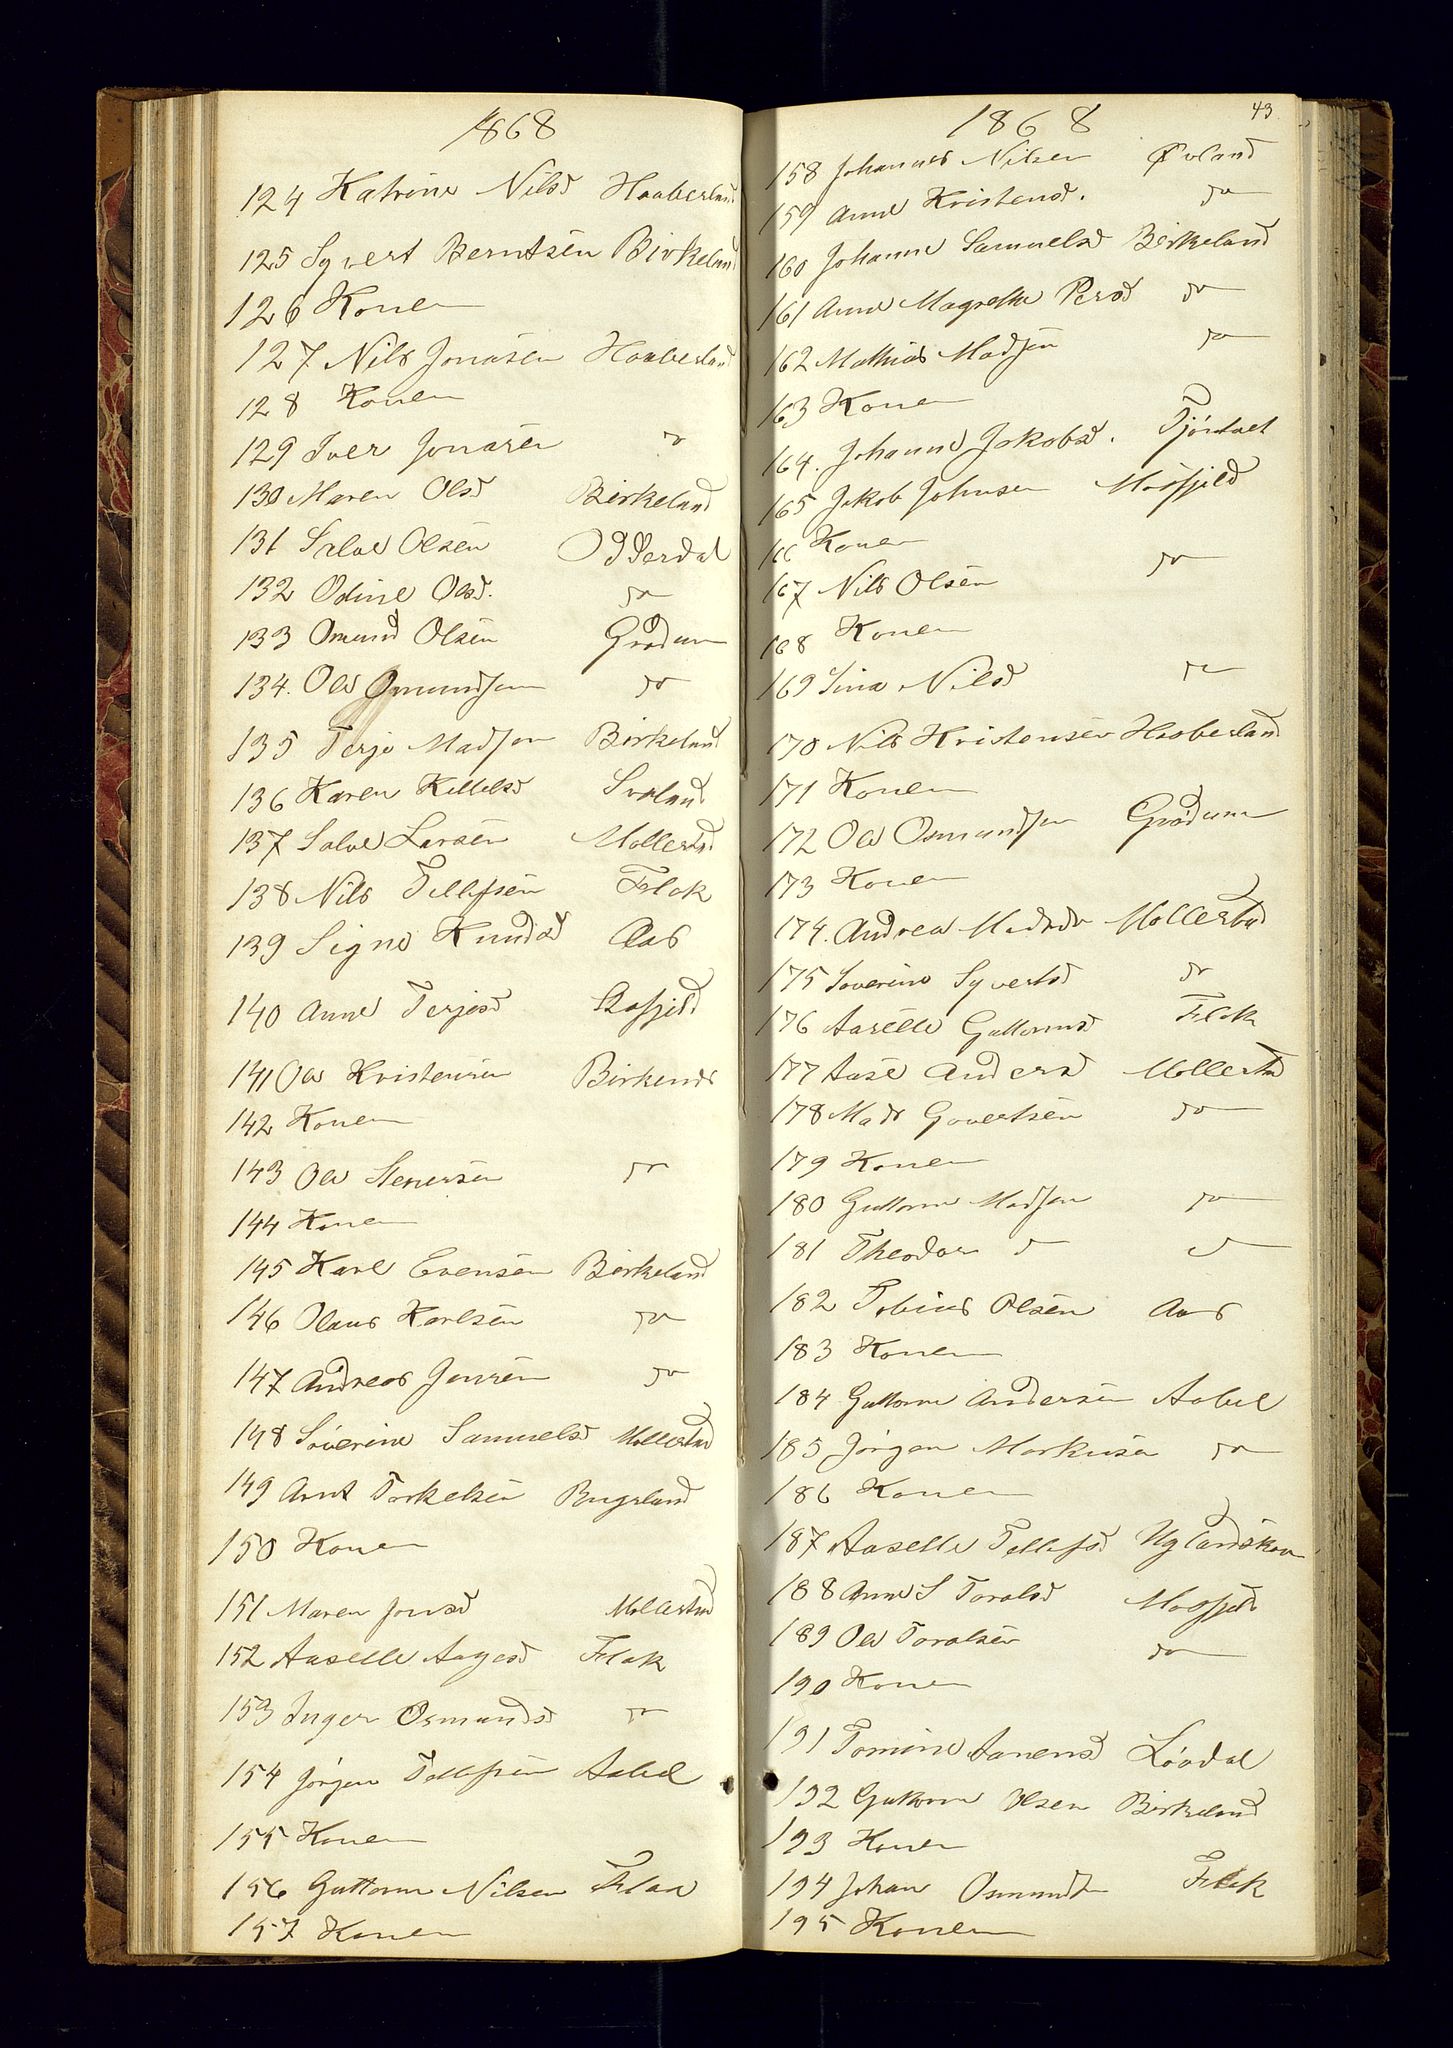 1868
124 Katrine Nilsd Haaberland
125 Syvert Berntsen Birkeland
126 Konen
127 Nils Jonasen Haaberland
128 Konen
129 Iver Jonasen do
130 Maren Olsd Birkeland
131 Salve Olsen Odderdal
132 Odine Olsd. do
133 Omund Olsen Grødum
134. Ole Omundsen do
135 Terje Madsen Birkeland
136 Karen Kittelsd Svaland
137 Salve Larsen Mollestad
138 Nils Tellefsen Flak
139 Signe Knudsd Aas
140 Anne Terjesd
141 Ole Kristensen Birkenes
142 Konen
143 Ole Stenersen do
144 Konen
145 Karl Evensen Birkeland
146 Olaus Karlsen do
147 Andreas Jensen do
148 Severine Samuelsd Mollestad
149 Arnt Torkelsen Bugsland
150 Konen
151 Maren Jonsd Mollestad
152 Aaselle Aagesd Flak
153 Inger Osmundsd do
154 Jørgen Tellefsen Aabel
155 Konen
156 Guttorm Nilsen Flaa
157 Konen
1868 43
158 Johannes Nilsen Øvland
159 Anne Kristensd. do
160 Johanne Samuelsd Birkeland
161 Anne Magrethe Persd do
162 Mathias Madsen do
163 Konen
164. Johanne Jakobsd. Tjordal
165 Jakob Johnsen Mosfjeld
166 Konen
167 Nils Olsen do
168 Konen
169 Sina Nilsd do
170 Nils Kristensen Haaberland
171 Konen
172 Ole Osmundsen Grødum
173 Konen
174. Andrea Madsd Mollestad
175 Severine Syvertsd do
176 Aaselle Guttormsd Flak
177 Aase Andersd Mollestad
178 Mads Govertsen do
179 Konen
180 Guttorm Madsen do
181 Theodor do do
182 Tobias Olsen Aas
183 Konen
184 Guttorm Andersen Aabel
185 Jørgen Markusen do
186 Konen
187 Aaselle Tellefsd Uglandskaun
188 Anne S Toralsd Mosfjeld
189 Ole Toralsen do
190 Konen
191 Tomine Aanensd Løvdal
192 Guttorm Olsen Birkeland
193 Konen
194 Johan Osmunds Flak
195 Konen